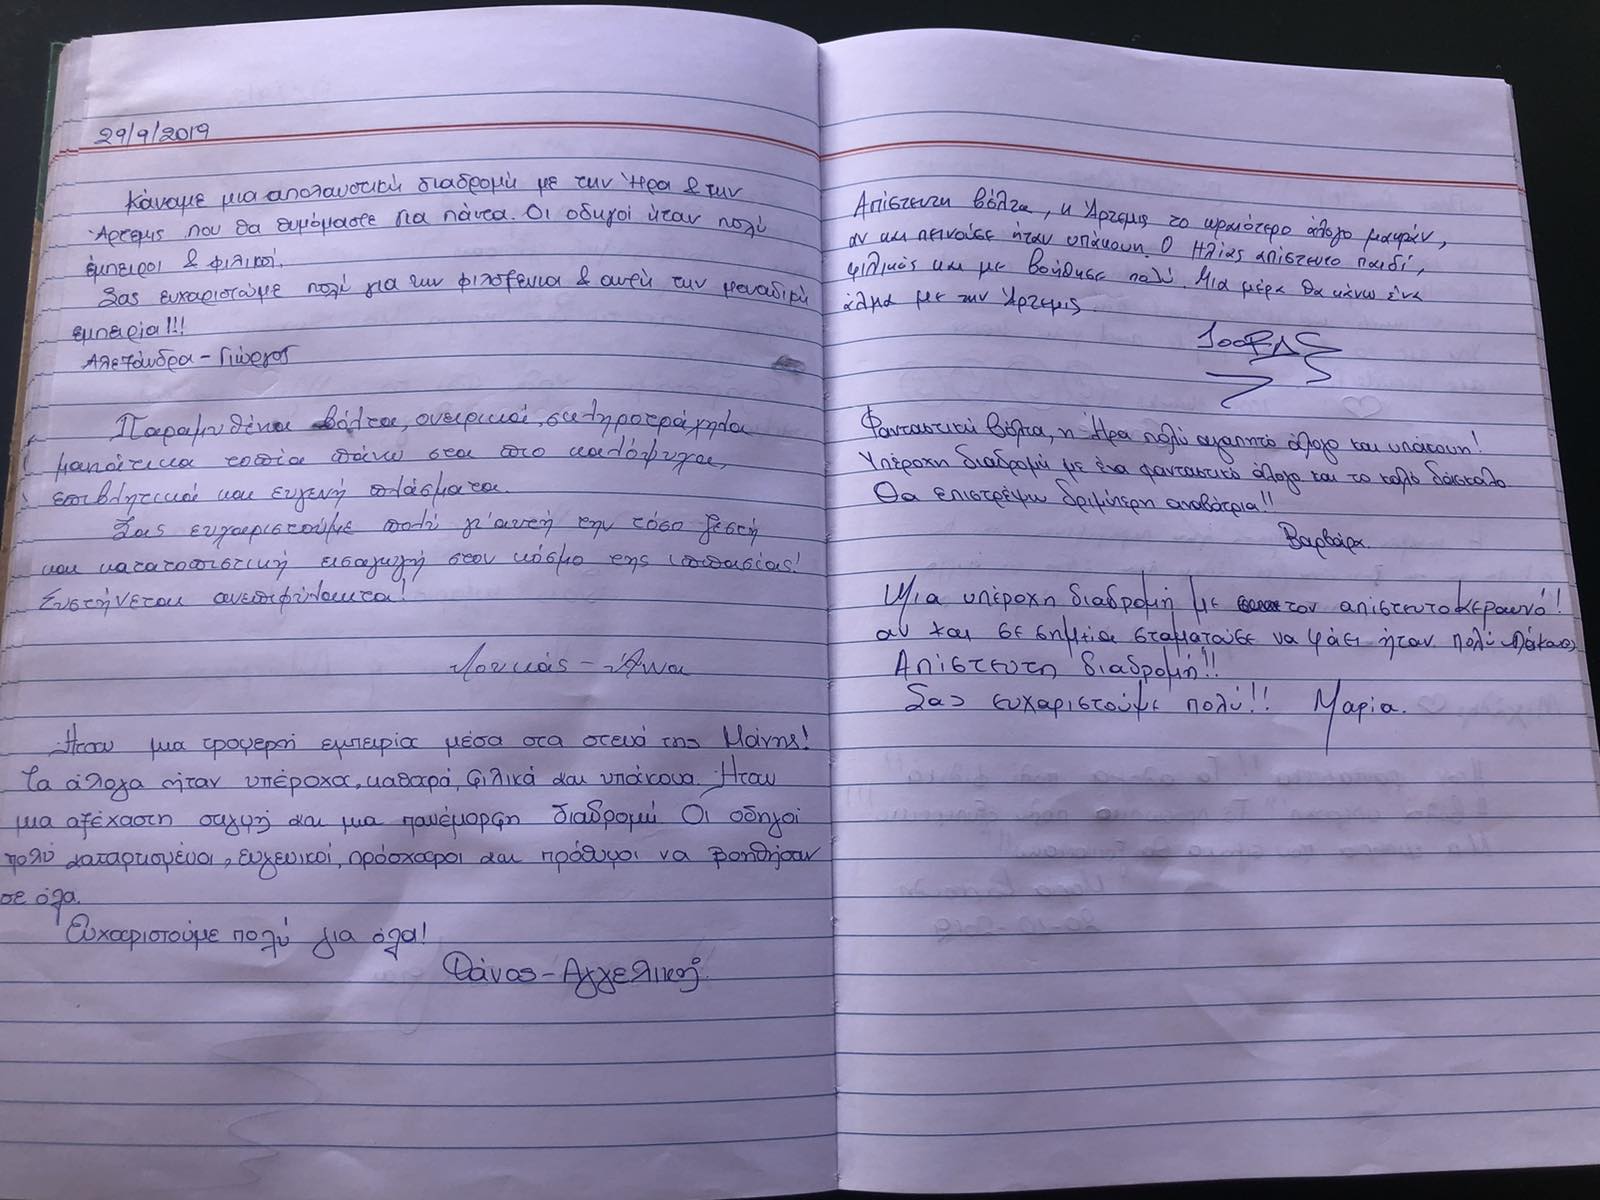 29/9/2019
Κάναμε μια απολαυστική διαδρομή με την Ήρα & την
Άρτεμις που θα θυμόμαστε για πάντα. Οι οδηγοί ήταν πολύ
έμπειροι & φιλικοί.
Σας ευχαριστούμε πολύ για την φιλοξενία & αυτή την μοναδική
εμπειρία!!!
Αλεξάνδρα - Γιώργος
Παραμυθένια βόλτα, ονειρικοί, σκληροτράχηλα
μανιάτικα τοπία πάνω στα πιο καλόψυχα,
επιβλητικά και ευγενή πλάσματα.
Σας ευχαριστούμε πολύ γι' αυτή την τόσο ζεστή
και κατατοπιστική εισαγωγή στον κόσμο της ιππασίας!
Συστήνεται ανεπιφύλακτα!
Λουκάς - Άννα
Ήταν μια τρομερή εμπειρία μέσα στα στενά της Μάνης!
Τα άλογα ήταν υπέροχα, καθαρά, φιλικά και υπάκουα. Ήταν
μια αξέχαστη στιγμή και μια πανέμορφη διαδρομή. Οι οδηγοί
πολύ καταρτισμένοι, ευγενικοί, πρόσχαροι και πρόθυμοι να βοηθήσουν
σε όλα.
Ευχαριστούμε πολύ για όλα!
Φάνος - Αγγελική
Απίστευτη βόλτα, η Άρτεμις το ωραιότερο άλογο μακράν,
αν και πεινούσε ήταν υπάκουη. Ο Ηλίας απίστευτο παιδί,
φιλικός και με βοήθησε πολύ. Μια μέρα θα κάνω ένα
άλμα με την Άρτεμις.
Φανταστική βόλτα, η Ήρα πολύ αγαπητό άλογο και υπάκουη!
Υπέροχη διαδρομή με ένα φανταστικό άλογο και το καλό δάσκαλο
Θα επιστρέψω δριμύτερη αναβάτρια!!
Βαρβάρα.
Μια υπέροχη διαδρομή με τον απίστευτο Κεραυνό!
αν και σε σημεία σταματούσε να φάει ήταν πολύ
Απίστευτη διαδρομή!!
Σας ευχαριστούμε πολύ!! Μαρία.